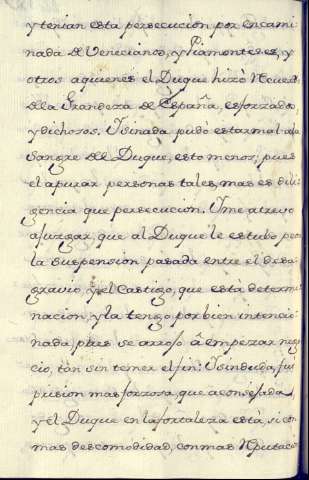 y tenian esta persecucion por encami
nada de Venicianos, y Piamonteses, y
otros aquienes el Duque hizò Recuerd
dela Grandeza de España, esforzados
y dichosos. Y sinada pudò estar mal ala
Sangre del Duque, esto menos; pues
el apurar personas tales, mas es dili
gencia que persecucion. Y me atrevo
a juzgar, que al Duque le estubo peor
la suspension pasada entre el desa
gravio, y el Castigo, que està determi
nacion, y la tengo por bien intencio
nada, pues se arrojò â empezar nego
cio, tan sin temer el fin: Y sinduda, fuè
prision mas forzosa, que aconsejada
y el Duque en la fortaleza està, si con
mas descomodidad, con mas Reputacio